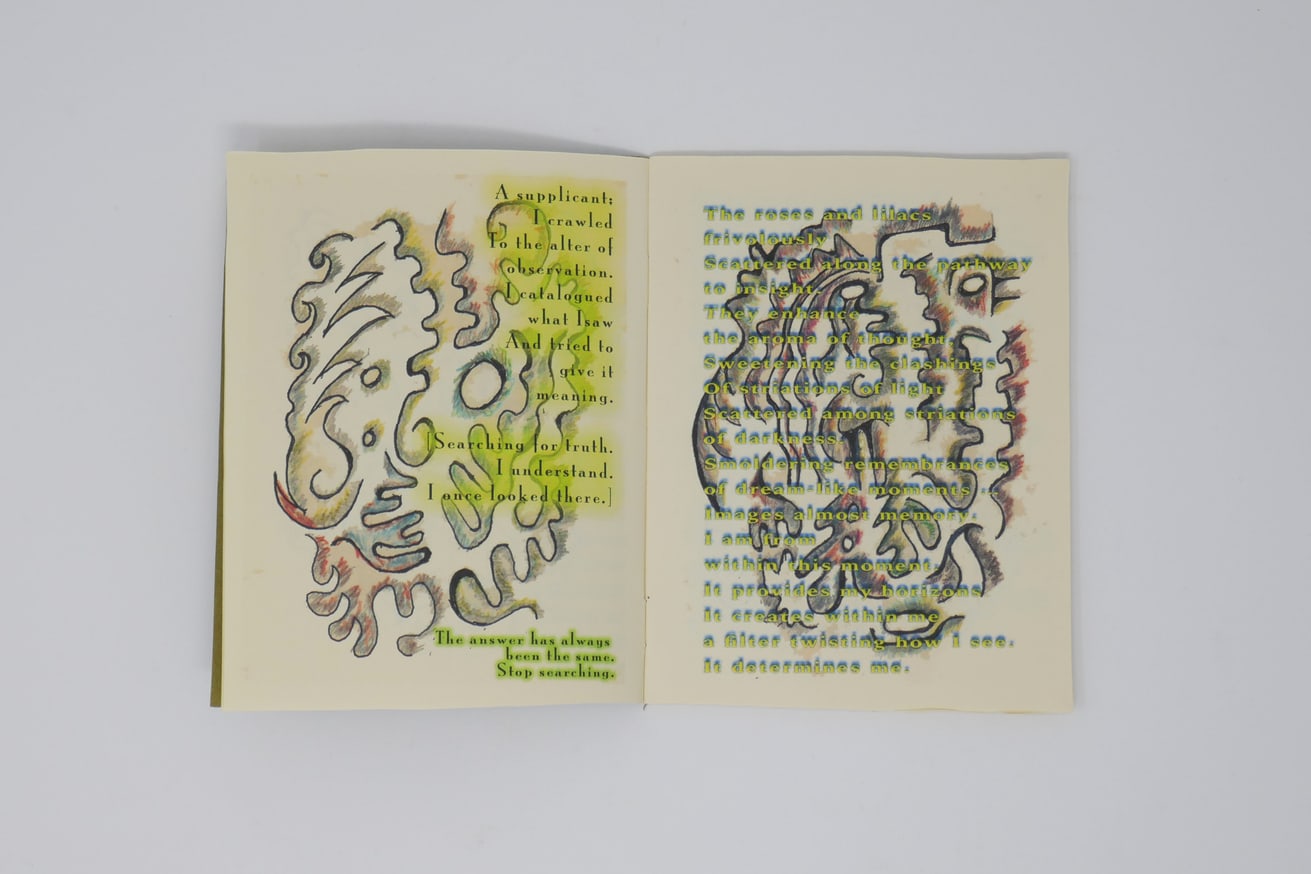 A supplicant;
I crawled
To the alter of
observation.
I catalogued
what I saw
And tried to
give it
meaning.
[Searching for truth.
I understand.
I once looked there.]
The answer has always
been the same.
Stop searching.
The roses and lilacs
frivolously
Scattered along the pathway
to insight.
They enhance
the aroma of thought,
Sweetening the clashings
Of striations of light
Scattered among striations
of darkness.
Smoldering remembrances
of dream-like moments ...
Images almost memory.
I am from
within this moment.
It provides my horizons.
It creates within me
a filter twisting how I see.
It determines me.